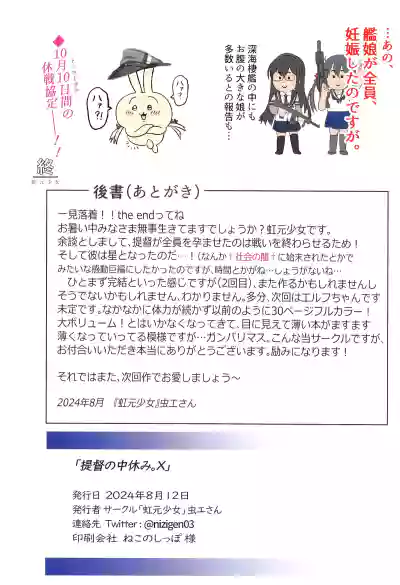 …あの、
艦娘が全員、
妊娠したのですが。
深海棲艦の中にも
お腹の大きな娘が
多数いるとの報告も…
ハァ?!
ハァ?!
10月10日間の
休戦協定――!
終
後書(あとがき)
一見落着!!the endってね
お暑い中みなさま無事生きてますでしょうか?虹元少女です。
余談としまして、提督が全員を孕ませたのは戦いを終わらせるため!
そして彼は星となったのだ…!(なんか†社会の闇†に始末されたとかで
みたいな感動巨編にしたかったのですが、時間とかがね…しょうがないね…
ひとまず完結といった感じですが(2回目)、また作るかもしれませんし
そうでないかもしれません、わかりません。多分、次回はエルフちゃんです
未定です。なかなかに体力が続かず以前のように30ページフルカラー!
大ボリューム!とはいかなくなってきて、目に見えて薄い本がますます
薄くなっていってる模様ですが…ガンバリマス。こんな当サークルですが、
お付合いいただき本当にありがとうございます。励みになります!
それではまた、次回作でお愛しましょう~
2024年8月 『虹元少女』虫エさん
「提督の中休み。X」
発行日 2024年8月12日
発行者 サークル「虹元少女」虫エさん
連絡先 Twitter:@nizigen03
印刷会社 ねこのしっぽ 様